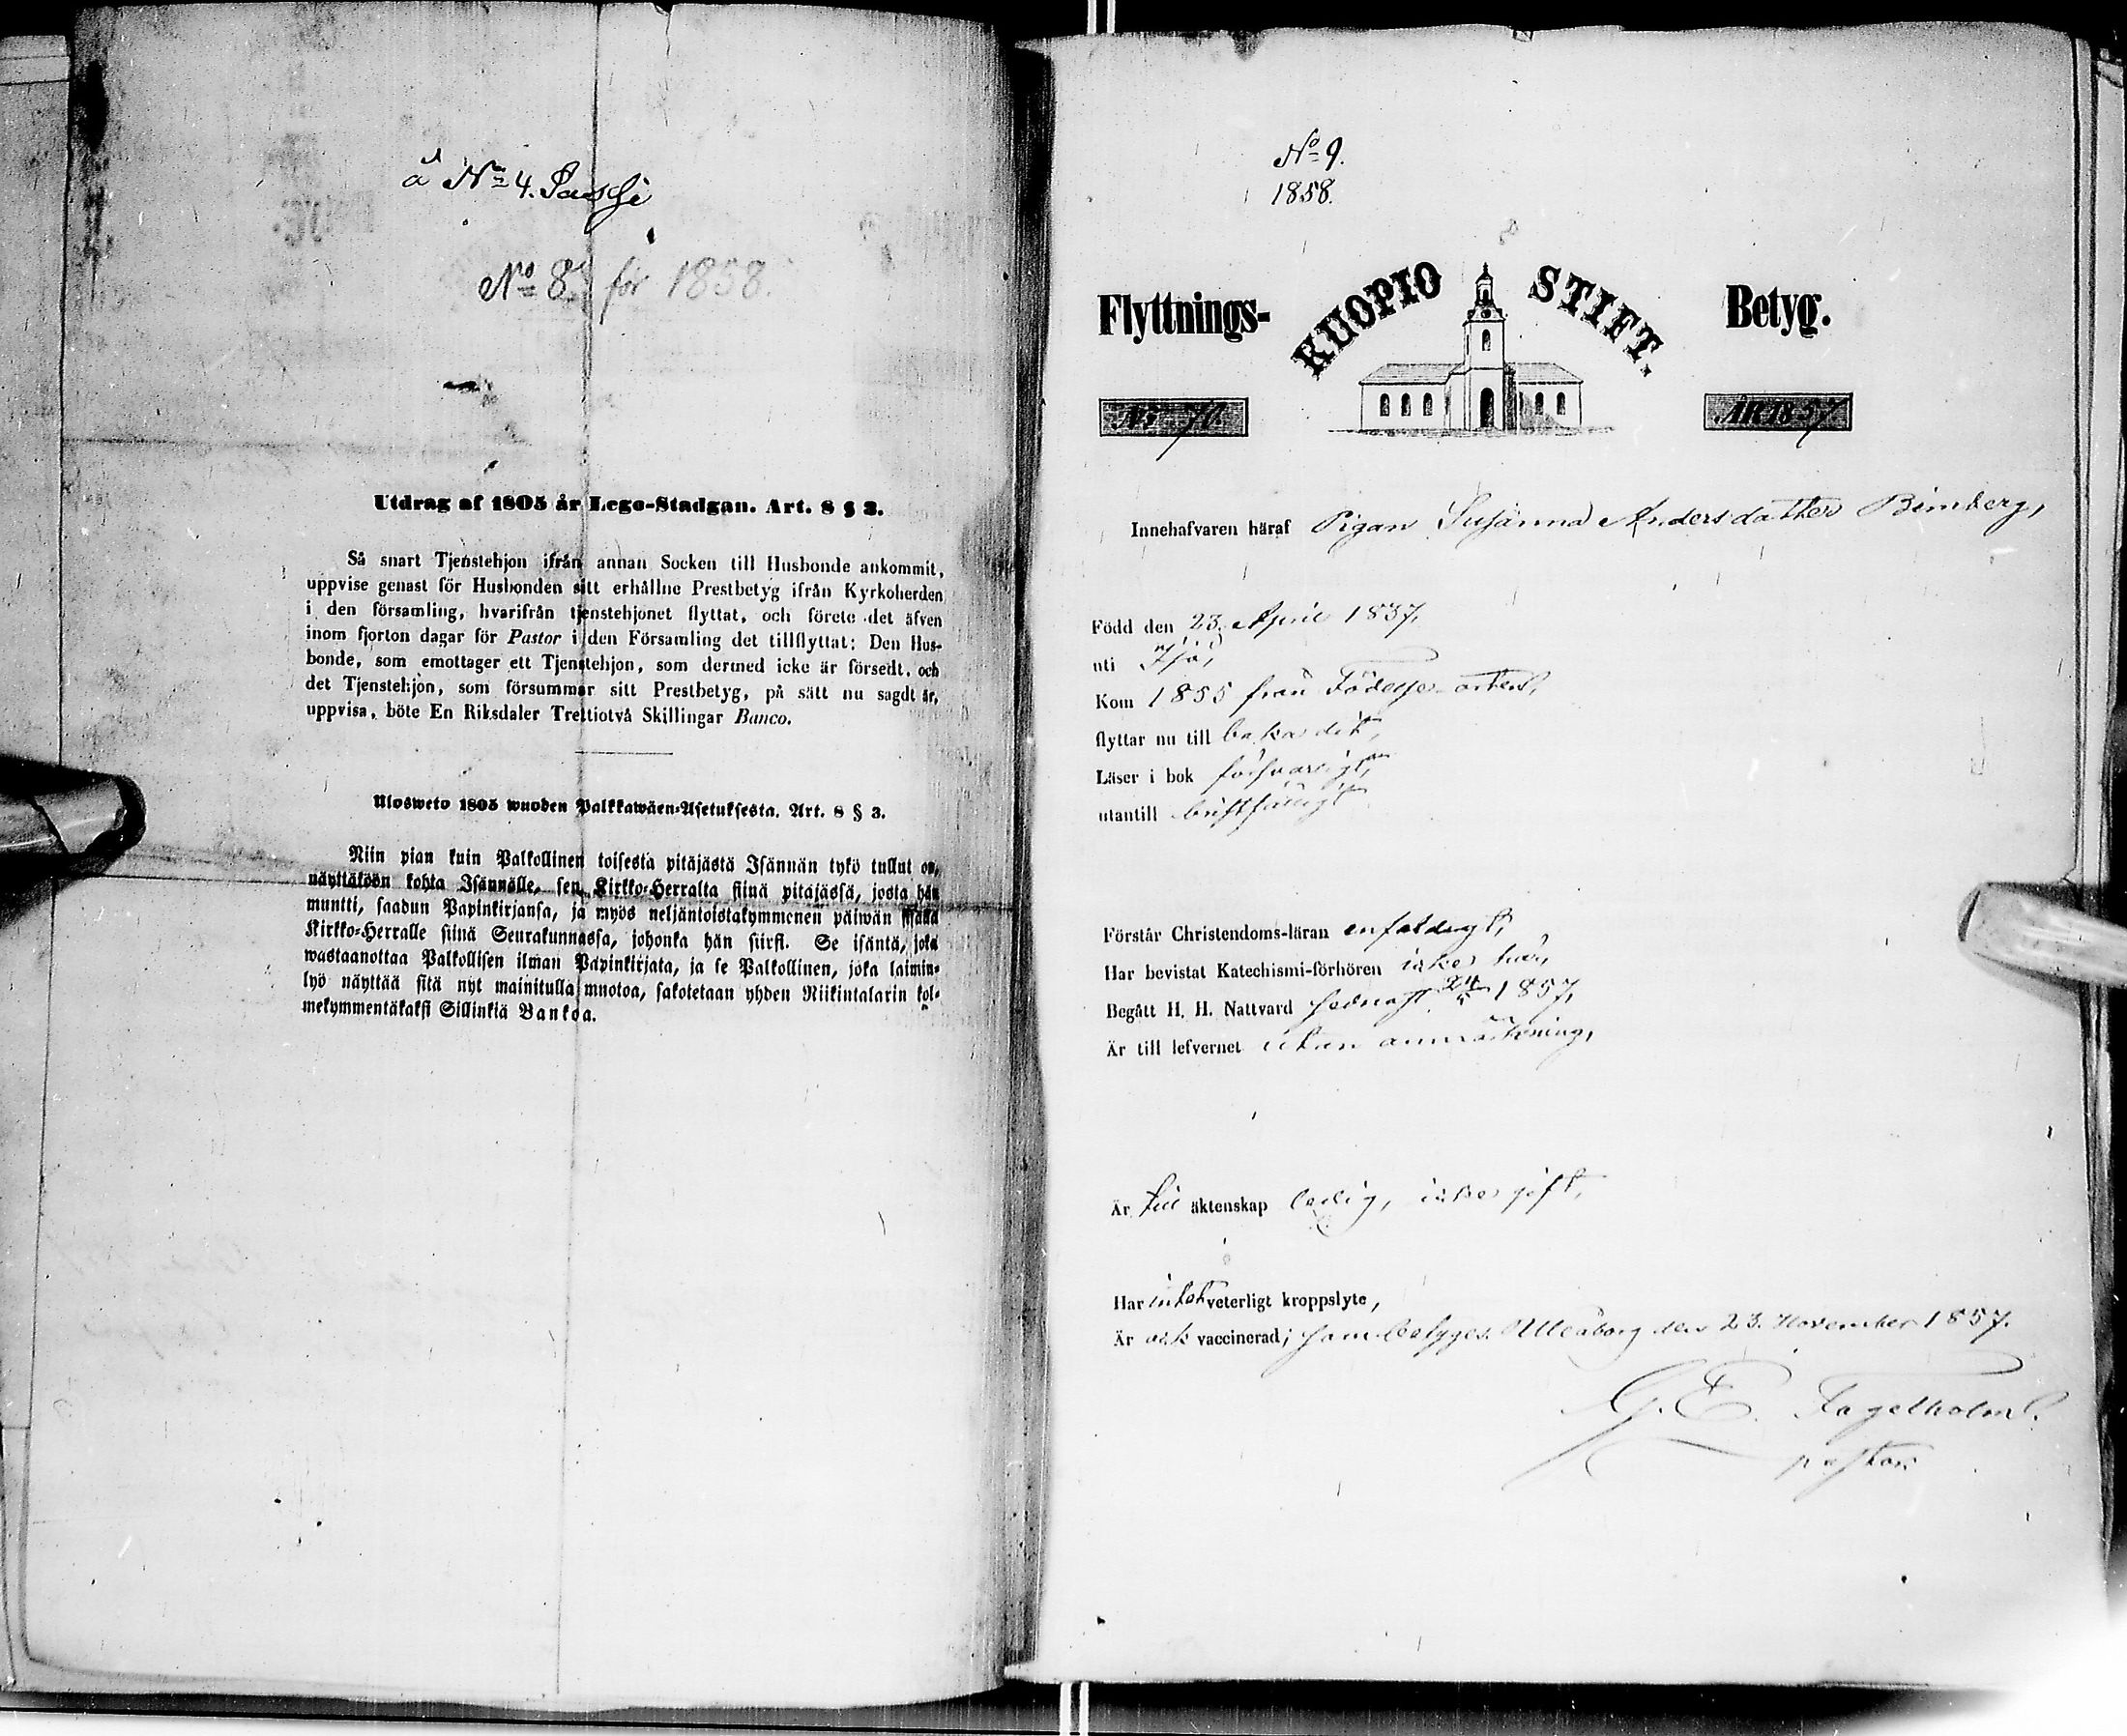 å No 4.
No 8 för 1858.
Utdrag af 1805 år Lego-Stadgan. Art. 8 § 3.
Så snart Tjenstehjon ifrån annan Socken till Husbonde ankommit,
uppvise genast för Husbonden sitt erhållne Prestbetyg ifrån Kyrkoherden
i den församling, hvarifrån tjenstehjonet flyttat, och förete det äfven
inom fjorton dagar för Pastor i den Församling det tillflyttat: Den Hus-
bonde, som emottager ett Tjenstehjon, som dermed icke är försedt, och
det Tjenstehjon, som försummar sitt Prestbetyg, på sätt nu sagdt är,
uppvisa, böte En Riksdaler Trettiotvå Skillingar Banco.
Ulosweto 1805 wuoden Palkkawäen-Asetuksesta. Art. 8 § 3.
Niin pian kuin Palkollinen toisesta pitäjästä Isännän tykö tullut on,
näyttäköön kohta Isännälle, sen Kirkko-Herralta siinä pitäjässä, josta hän
muntti, saadun Papinkirjansa, ja myös neljäntoistakymmenen päiwän sisällä
Kirkko-Herralle siinä Seurakunnassa, johonka hän siirsi. Se isäntä, joka
wastaanottaa Palkollisen ilman Papinkirjata, ja se Palkollinen, joka laimin-
lyö näyttää sitä nyt mainitulla muotoa, sakotetaan yhden Riikintalarin kol-
mekymmentäkaksi Sillinkiä Bankoa.
No 9.
1858.
Flyttnings- KUOPIO STIFT. Betyg.
ÅR 1857
Innehafvaren häraf Pigan Susanna Andersdotter Bimberg,
Född den 23. April 1837,
uti Ijo,
Kom 1855 från Födelse-orten,
flyttar nu till baka dit,
Läser i bok försvarligt,
utantill bristfälligt
Förstår Christendoms-läran enfaldigt,
Har bevistat Katechismi-förhören icke här,
Begått H. H. Nattvard sednast 1857,
Är till lefvernet utan anmärkning,
Är till äktenskap ledig, icke gift,
Har intet veterligt kroppslyte,
Är ock vaccinerad; som betyges. Uleåborg den 23. November 1857.
G. E. Fagelholm.
pastor